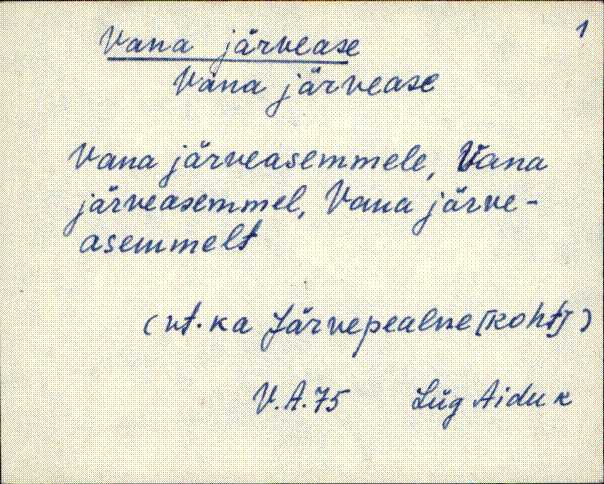 1
Vana järvease
Vana järvease
Vana järveasemmele, Vana
järveasemmel, Vana järve-
asemmelt
(vt. ka Järvepealne [koht])
V.A.75 Lüg Aidu k